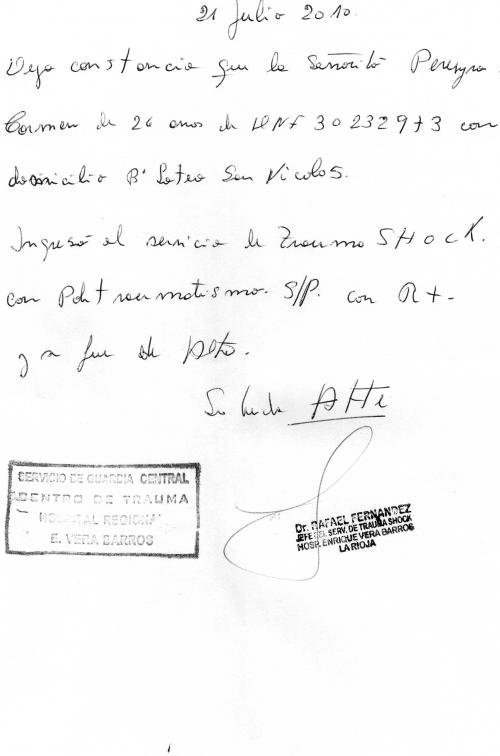 21 Julio 2010.
Dejo constancia que la Señorita Pereyra
Carmen de 26 años de DNI 30232973 con
domicilio B° Loteo San Nicolas.
Ingresó al servicio de Trauma SHOCK.
con Politraumatismo. S/P. con R+-
y se fue de Alta.
Saluda Atte
SERVICIO DE GUARDIA CENTRAL
CENTRO DE TRAUMA
HOSPITAL REGIONAL
E. VERA BARROS
Dr. RAFAEL FERNANDEZ
JEFE DEL SERV. DE TRAUMA SHOCK
HOSP. ENRIQUE VERA BARROS
LA RIOJA